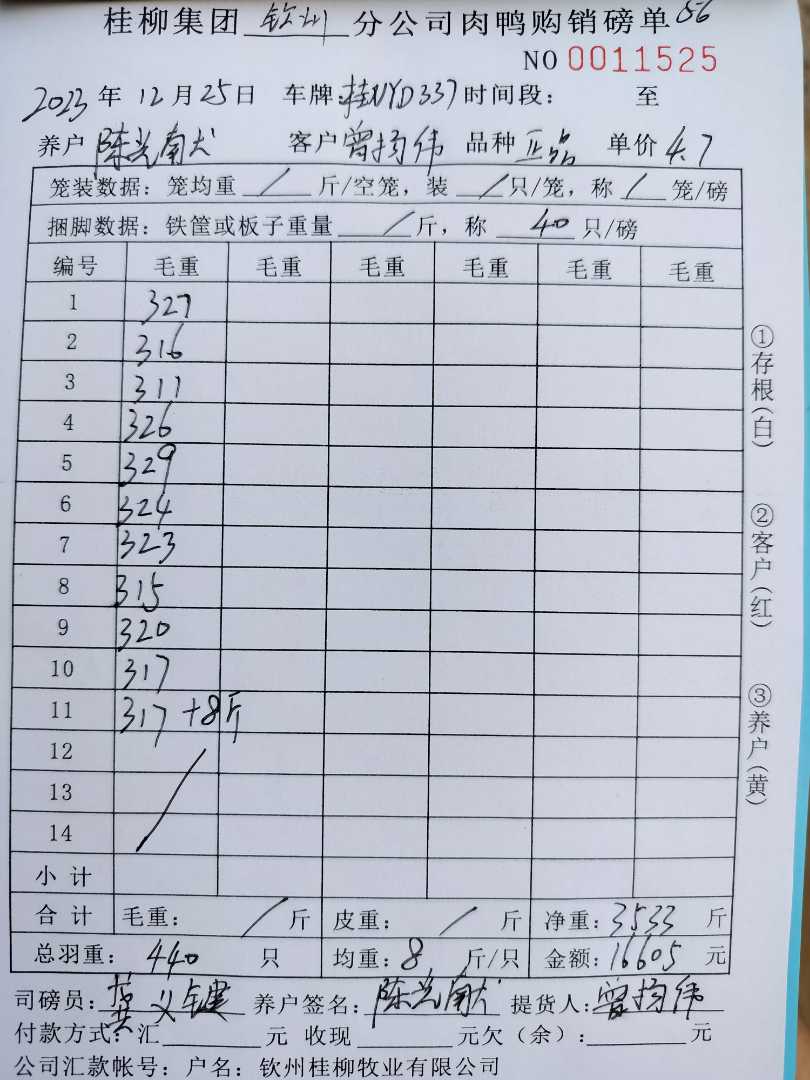 桂柳集团 钦州 分公司肉鸭购销磅单 56
NO 0011525
2023年 12月 25日 车牌:桂NYD337 时间段: 至
养户 陈光南犬 客户 曾扬伟 品种 正品 单价 4.7
笼装数据:笼均重 / 斤/空笼,装 / 只/笼,称 / 笼/磅
捆脚数据:铁筐或板子重量 / 斤,称 40 只/磅
编号 毛重 毛重 毛重 毛重 毛重 毛重
1 327
2 316
3 311
4 326
5 329
6 324
7 323
8 315
9 320
10 317
11 317 +8斤
12
13
14
小计
合计 毛重: / 斤 皮重: / 斤 净重:3533 斤
总羽重: 440 只 均重:8 斤/只 金额:16605 元
司磅员: 义键 养户签名:陈光南犬 提货人:曾扬伟
付款方式:汇 元 收现 元欠(余): 元
公司汇款帐号:户名:钦州桂柳牧业有限公司
①存根(白)
②客户(红)
③养户(黄)